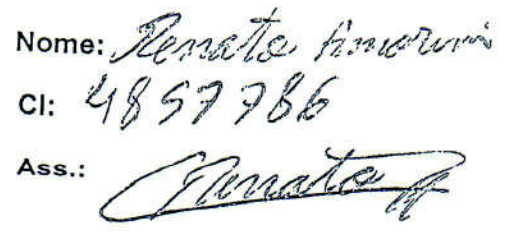 Nome: Renata Amorim
CI: 4857786
Ass.: Renata A